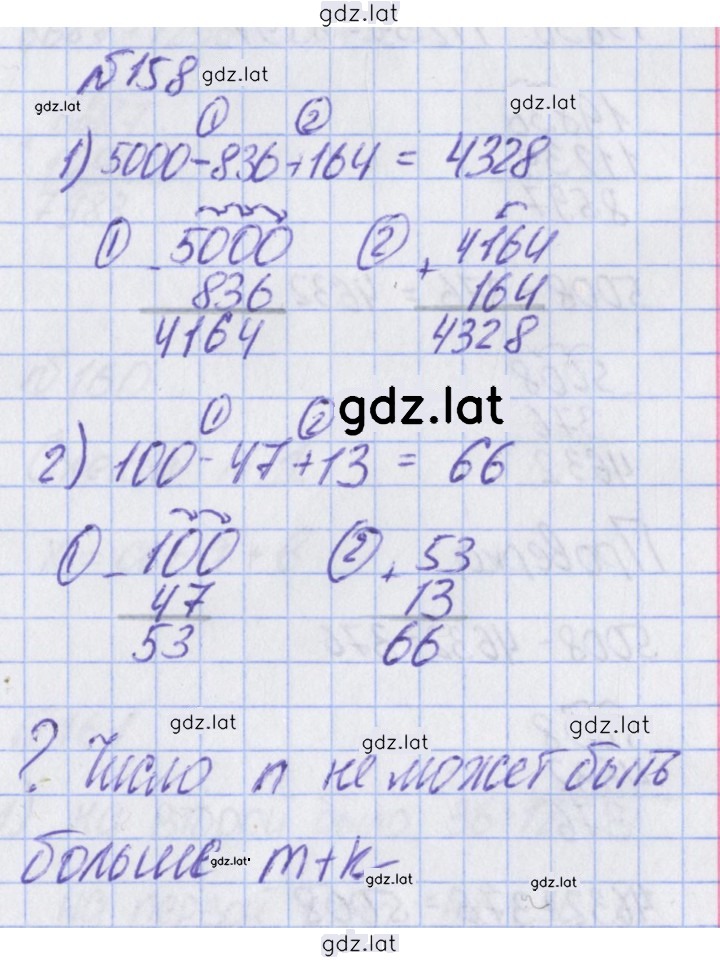 gdz.lat
№158 gdz.lat
gdz.lat gdz.lat
① ②
1) 5000-836+164 = 4328
① - 5000 ② + 4164
836 164
4164 4328
① ② gdz.lat
2) 100-47+13 = 66
① - 100 ② + 53
47 13
53 66
gdz.lat gdz.lat gdz.lat
? Число n не может быть
больше gdz.lat m+k-
gdz.lat gdz.lat
gdz.lat